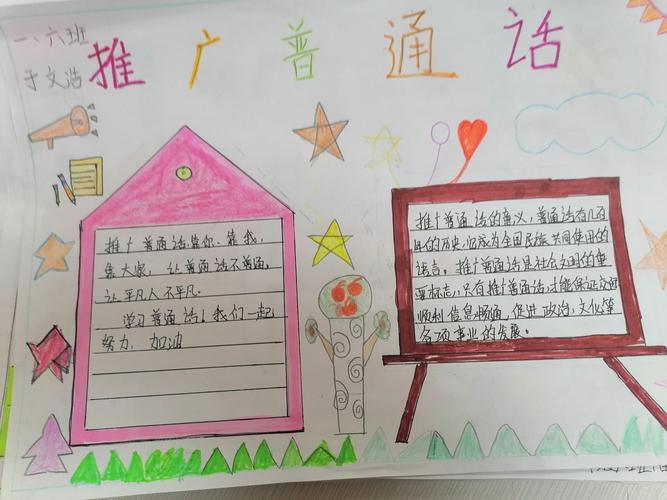 一、六班
于文浩
推广普通话
推广普通话靠你、靠我,
靠大家, 让普通话不普通,
让平凡人不平凡。
学习普通话!我们一起
努力, 加油
推广普通话的意义,普通话有几百
年的历史,
成为全国民族共同使用的
语言。推广普通话是社会文明的重
要标志,只有推广普通话,才能保证交流
顺利信息畅通,促进政治,文化等
各项事业的发展。